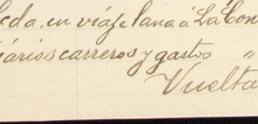 eda, en viáje lana á La Con
iários carreros y gastos "
Vuelta